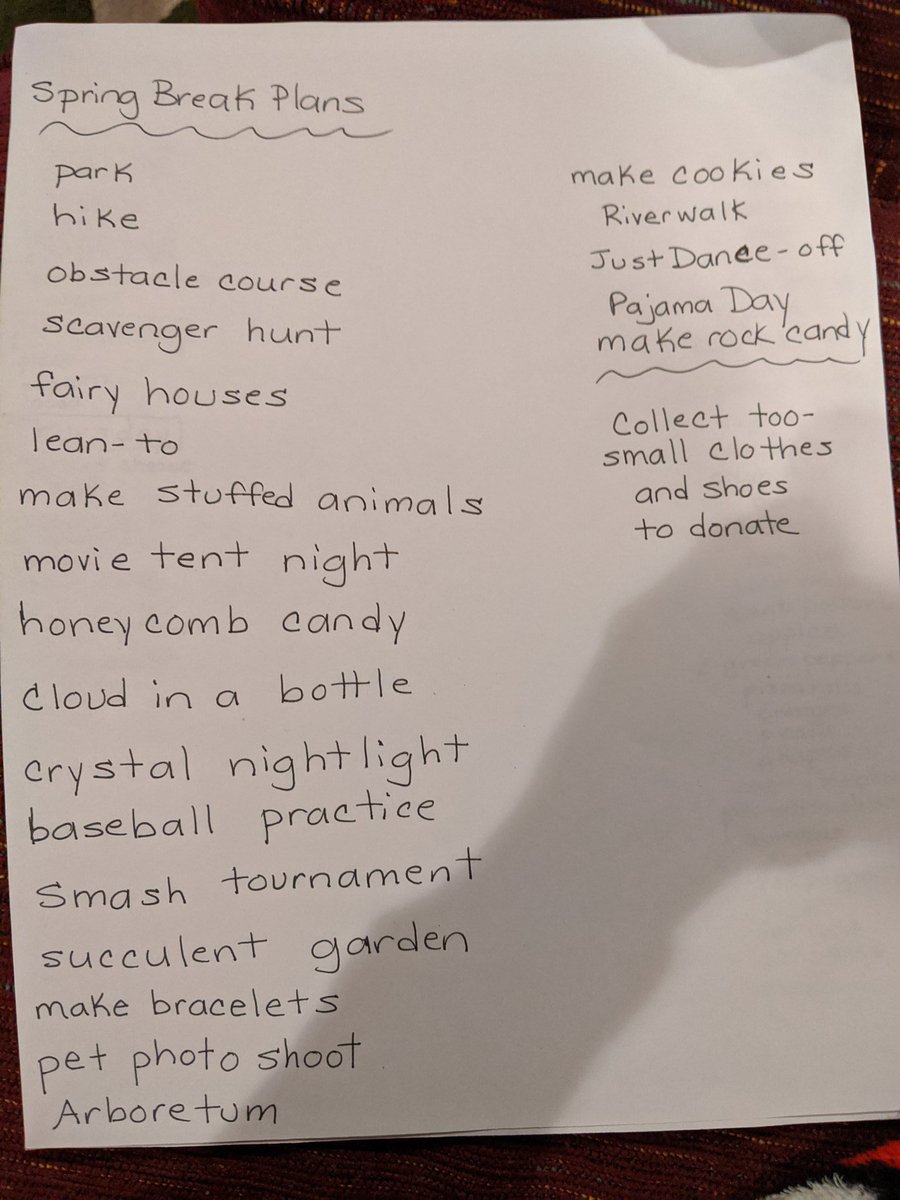 Spring Break Plans
park
hike
obstacle course
scavenger hunt
fairy houses
lean-to
make stuffed animals
movie tent night
honeycomb candy
cloud in a bottle
crystal nightlight
baseball practice
Smash tournament
succulent garden
make bracelets
pet photo shoot
Arboretum
make cookies
Riverwalk
Just Dance-off
Pajama Day
make rock candy
Collect too-
small clothes
and shoes
to donate